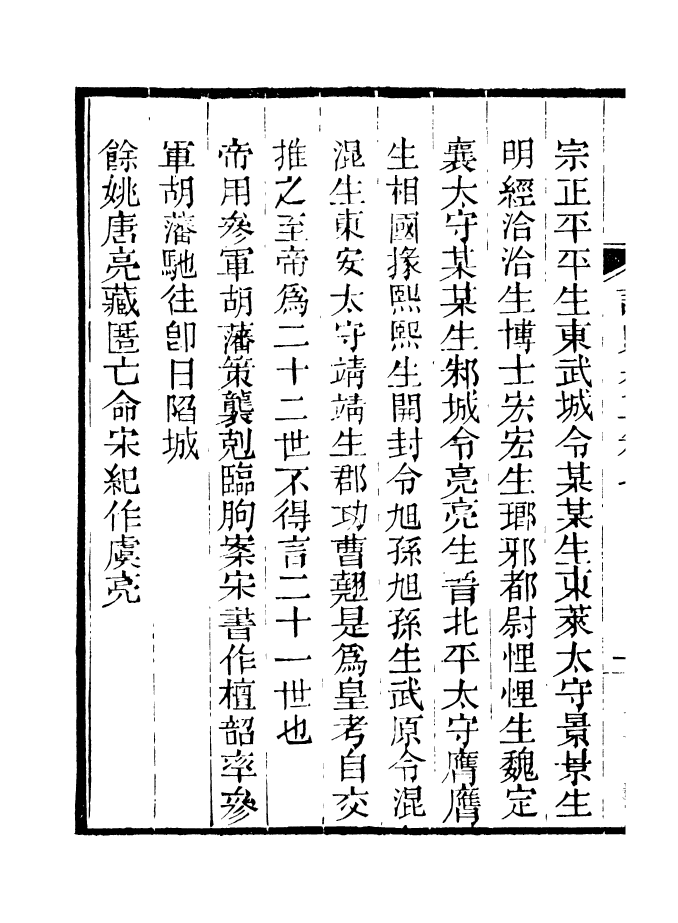 宗正平平生東武城令某某生東萊太守景景生
明經洽洽生博士宏宏生瑯邪都尉悝悝生魏定
襄太守某某生邾城令亮亮生晉北平太守膺膺
生相國掾熙熙生開封令旭孫旭孫生武原令混
混生東安太守靖靖生郡功曹翹是爲皇考自交
推之至帝爲二十二世不得言二十一世也
帝用參軍胡藩策襲剋臨朐案宋書作檀韶率參
軍胡藩馳往卽日陷城
餘姚唐亮藏匿亡命宋紀作虞亮